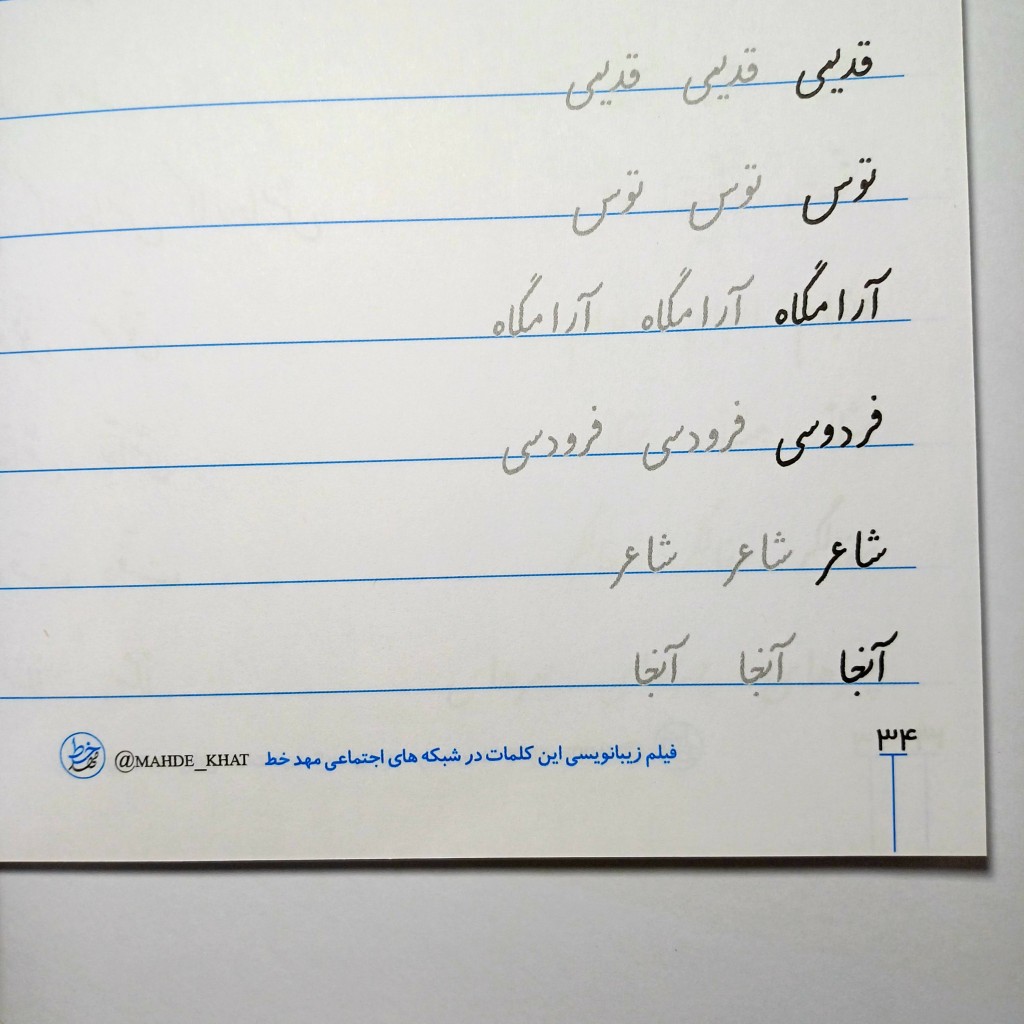 قدیمی قدیمی قدیمی
توس توس توس
آرامگاه آرامگاه آرامگاه
فردوسی فرودسی فرودسی
شاعر شاعر شاعر
آنجا آنجا آنجا
۳۴
فیلم زیبانویسی این کلمات در شبکه های اجتماعی مهد خط @MAHDE_KHAT
مهد خط